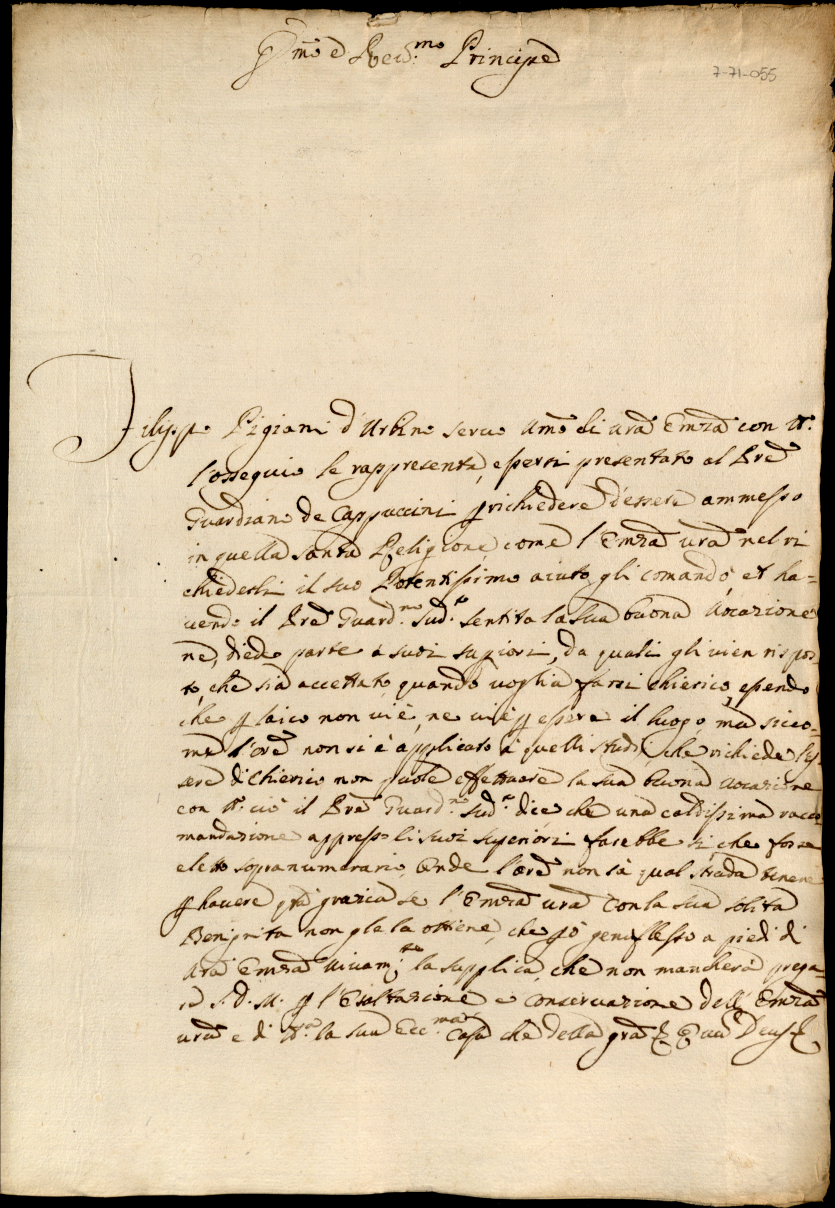 E.mo e Rev.mo Principe
7-71-055
Filippo Pigiani d'Urbino servo Um.o di vra Emza con tt.o
l'ossequio le rappresenta, essersi presentato al Pre
Guardiano de Cappuccini p richiedere d'essere ammesso
in quella Santa Religione come l'Emza vra nel ri
chiederli il suo Potentissimo aiuto gli comandò, et ha=
vendo il Pre Guard.no Sud.to sentita la sua buona Vocazione
ne, diede parte à suoi supiori, da quali gli vien rispos-
to, che sia accettato quando voglia farsi chierico, essendo
che p laico non vi è, ne vi è p essere il luogo, ma sicco-
me l'Ore non si è applicato à quelli studi, che richiede l'es
sere di Chierico non puole effettuare la sua buona vocazione
con tt.o ciò il Pre Guard.no Sud.o dice che una caldissima racco
mandazione appresso li suoi superiori farebbe sì, che forse
eletto sopranumerario, Onde l'Ore non sà qual strada tenere
p havere gta grazia se l'Emza vra con la sua solita
Benignita non gle la ottiene, che pò genuflesso a piedi di
Vra Emza Vivam.te la supplica, che non mancherà prega-
re S. D. M. p l'Esaltazione e Conservazione dell'Emza
vra e di tt.a la sua Ecc.ma Casa che della gra & Quã Deus &